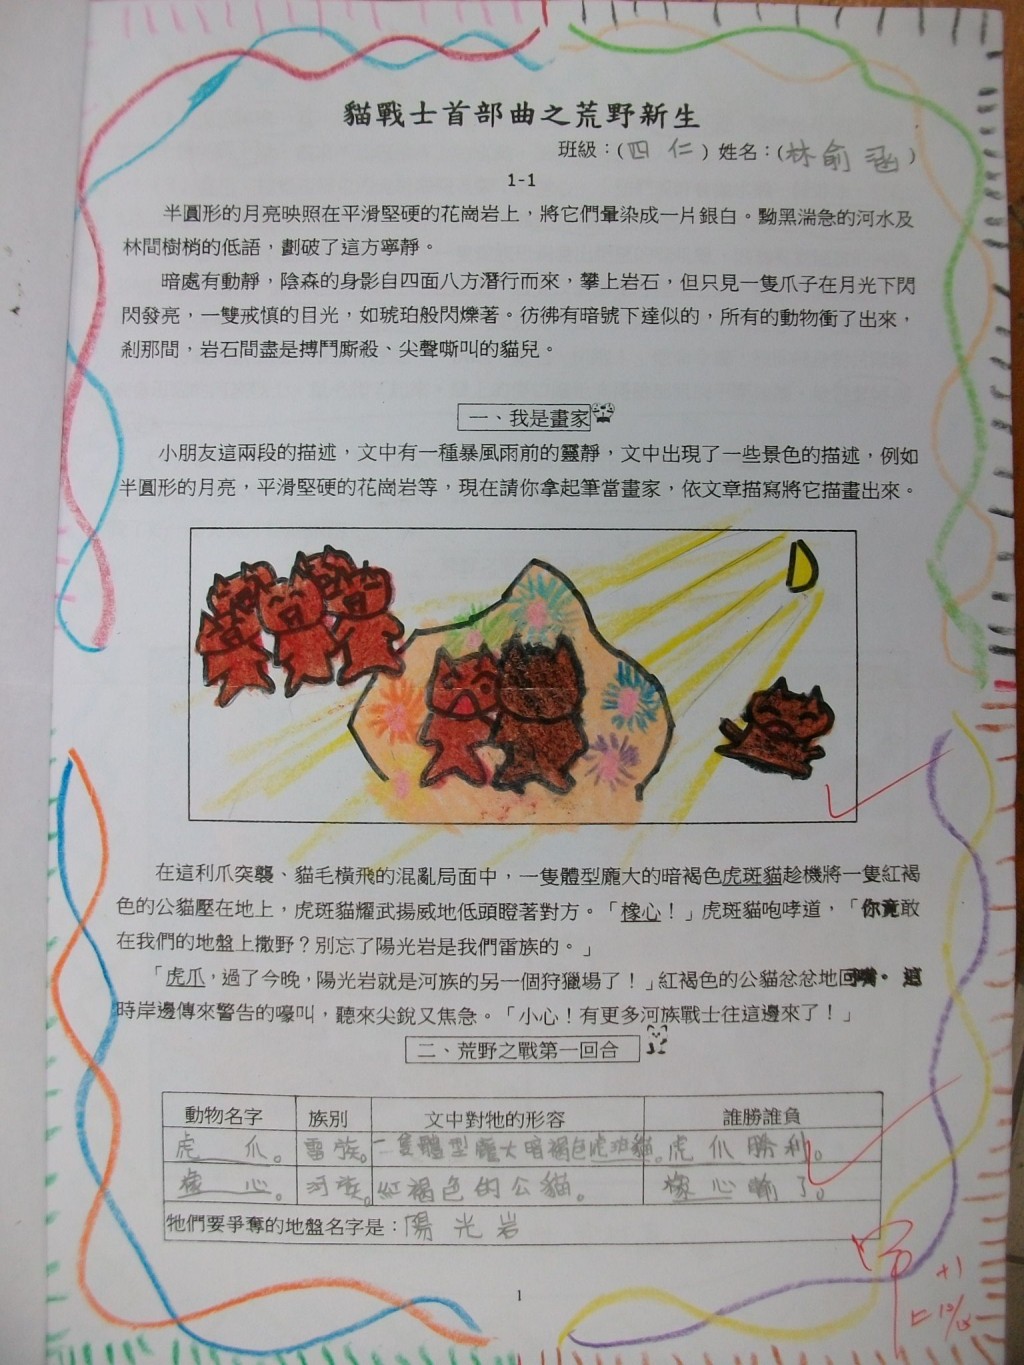 貓戰士首部曲之荒野新生
班級：(四仁) 姓名：(林俞涵)
1-1
半圓形的月亮映照在平滑堅硬的花崗岩上，將它們暈染成一片銀白。黝黑湍急的河水及
林間樹梢的低語，劃破了這方寧靜。
暗處有動靜，陰森的身影自四面八方潛行而來，攀上岩石，但只見一隻爪子在月光下閃
閃發亮，一雙戒慎的目光，如琥珀般閃爍著。彷彿有暗號下達似的，所有的動物衝了出來，
剎那間，岩石間盡是搏鬥廝殺、尖聲嘶叫的貓兒。
一、我是畫家
小朋友這兩段的描述，文中有一種暴風雨前的靈靜，文中出現了一些景色的描述，例如
半圓形的月亮，平滑堅硬的花崗岩等，現在請你拿起筆當畫家，依文章描寫將它描畫出來。
在這利爪突襲、貓毛橫飛的混亂局面中，一隻體型龐大的暗褐色虎斑貓趁機將一隻紅褐
色的公貓壓在地上，虎斑貓耀武揚威地低頭瞪著對方。「橡心！」虎斑貓咆哮道，「你竟敢
在我們的地盤上撒野？別忘了陽光岩是我們雷族的。」
「虎爪，過了今晚，陽光岩就是河族的另一個狩獵場了！」紅褐色的公貓忿忿地回嘴。這
時岸邊傳來警告的嚎叫，聽來尖銳又焦急。「小心！有更多河族戰士往這邊來了！」
二、荒野之戰第一回合
動物名字 族別 文中對牠的形容 誰勝誰負
虎爪。 雷族。 一隻體型龐大暗褐色虎斑貓。 虎爪勝利。
橡心。 河族。 紅褐色的公貓。 橡心輸了。
牠們要爭奪的地盤名字是：陽光岩
1
+1